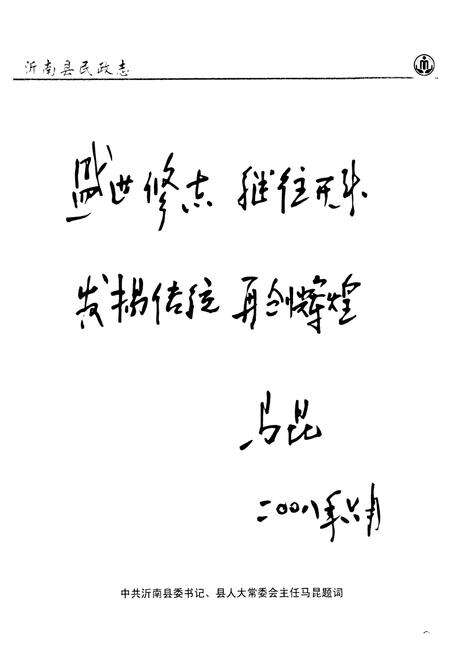 沂南县民政志
盛世修志 继往开来
发扬传统 再创辉煌
马昆
二〇〇八年六月
中共沂南县委书记、县人大常委会主任马昆题词